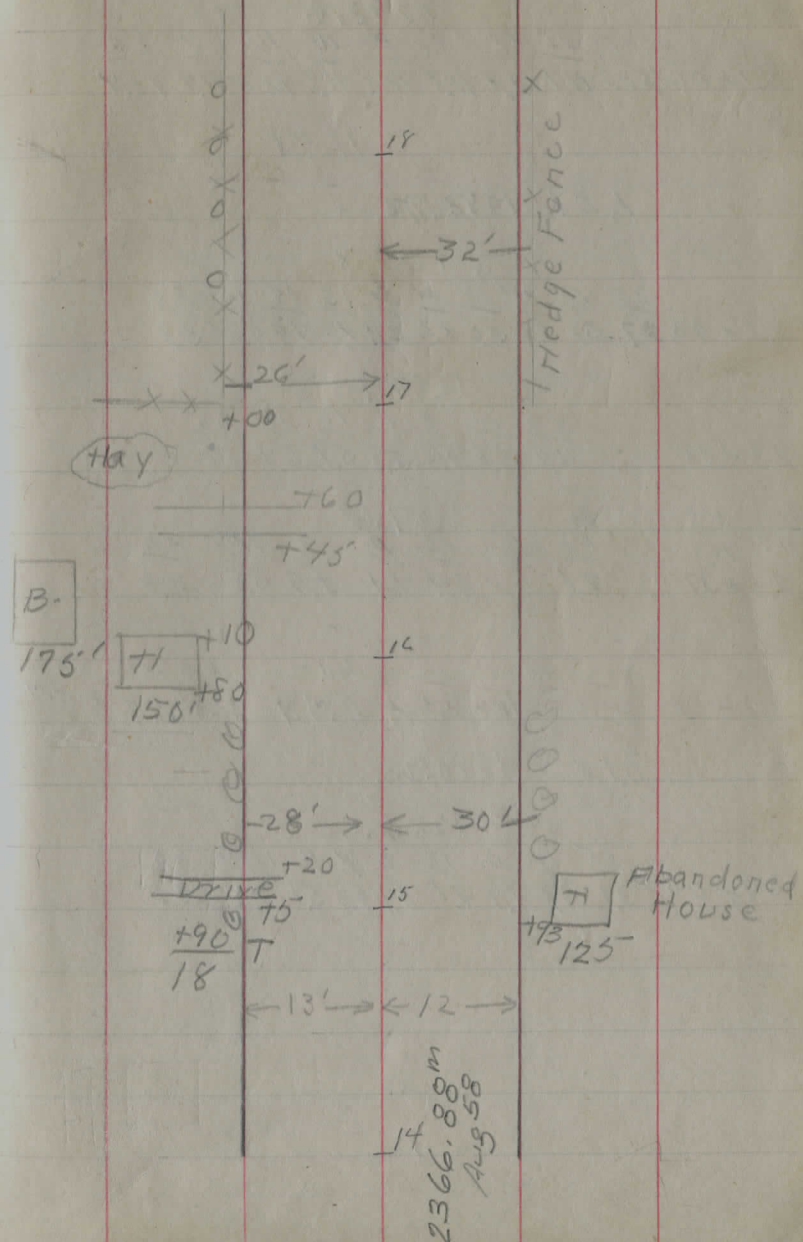 18
32'
Hedge Fence
26'
17
+00
Hay
+60
+45'
B.
175'
H
+10
+80
150'
16
28'
30'
+20
Drive
+5
15
H
Abandoned
House
+93
125
+90
18
T
13'
12
14
2366.88m
Aug 58